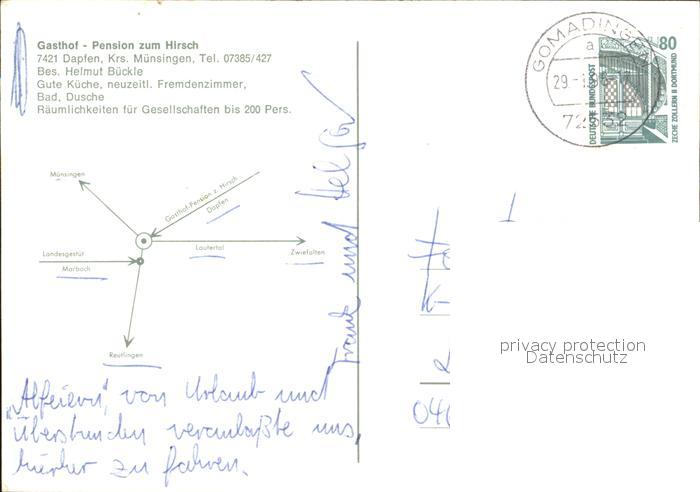 Gasthof - Pension zum Hirsch
7421 Dapfen, Krs. Münsingen, Tel. 07385/427
Bes. Helmut Bückle
Gute Küche, neuzeitl. Fremdenzimmer,
Bad, Dusche
Räumlichkeiten für Gesellschaften bis 200 Pers.
GOMADINGEN
a
29.
72532
80
DEUTSCHE BUNDESPOST
ZECHE ZOLLERN II DORTMUND
Münsingen
Gasthof-Pension z. Hirsch
Dapfen
Landesgestüt
Marbach
Lautertal
Zwiefalten
Reutlingen
"Abfeiern" von Urlaub und
Überstunden veranlaßte uns,
hierher zu fahren.
Frank und
privacy protection
Datenschutz